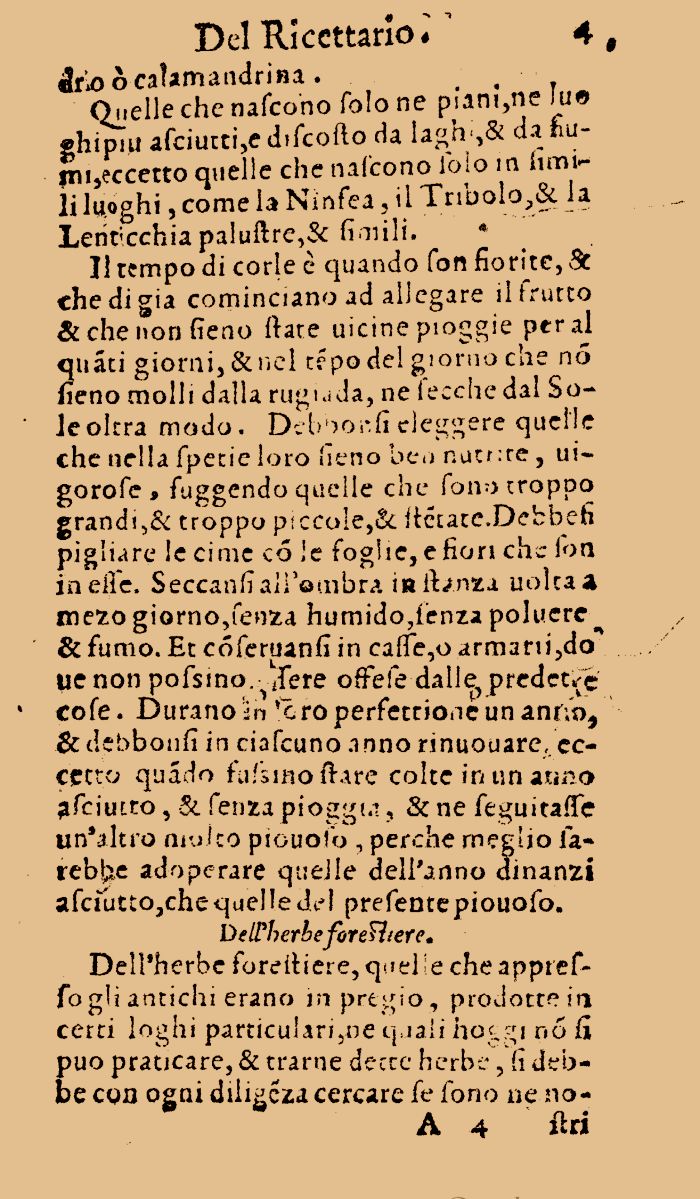 Del Ricettario. 4
drio ò calamandrina.
Quelle che naſcono ſolo ne piani,ne luo
ghi piu aſciutti,e diſcoſto da laghi,& da fiu-
mi,eccetto quelle che naſcono ſolo in ſimi-
li luoghi, come la Ninfea, il Tribolo,& la
Lenticchia paluſtre,& ſimili.
Il tempo di corle è quando ſon fiorite, &
che di gia cominciano ad allegare il frutto
& che non ſieno ſtate uicine pioggie per al
quãti giorni, & nel tẽpo del giorno che nõ
ſieno molli dalla rugiada, ne ſecche dal So-
le oltra modo. Debbonſi eleggere quelle
che nella ſpetie loro ſieno ben nutrite, ui-
goroſe, fuggendo quelle che ſono troppo
grandi,& troppo piccole,& ſtẽtate.Debbeſi
pigliare le cime cõ le foglie, e fiori che ſon
in eſſe. Seccanſi all'ombra in ſtanza uolta a
mezo giorno,ſenza humido,ſenza poluere
& fumo. Et cõſeruanſi in caſſe,o armarii,do
ue non poſsino eſſere offeſe dalle predette
coſe. Durano in loro perfettione un anno,
& debbonſi in ciaſcuno anno rinuouare, ec-
cetto quãdo fuſsino ſtare colte in un anno
aſciutto, & ſenza pioggia, & ne ſeguitaſſe
un'altro molto piouoſo, perche meglio ſa-
rebbe adoperare quelle dell'anno dinanzi
aſciutto,che quelle del preſente piouoſo.
Dell'herbe foreſtiere.
Dell'herbe foreſtiere, quelle che appreſ-
ſo gli antichi erano in pregio, prodotte in
certi loghi particulari,ne quali hoggi nõ ſi
puo praticare, & trarne dette herbe, ſi deb-
be con ogni diligẽza cercare ſe ſono ne no-
A 4 ſtri